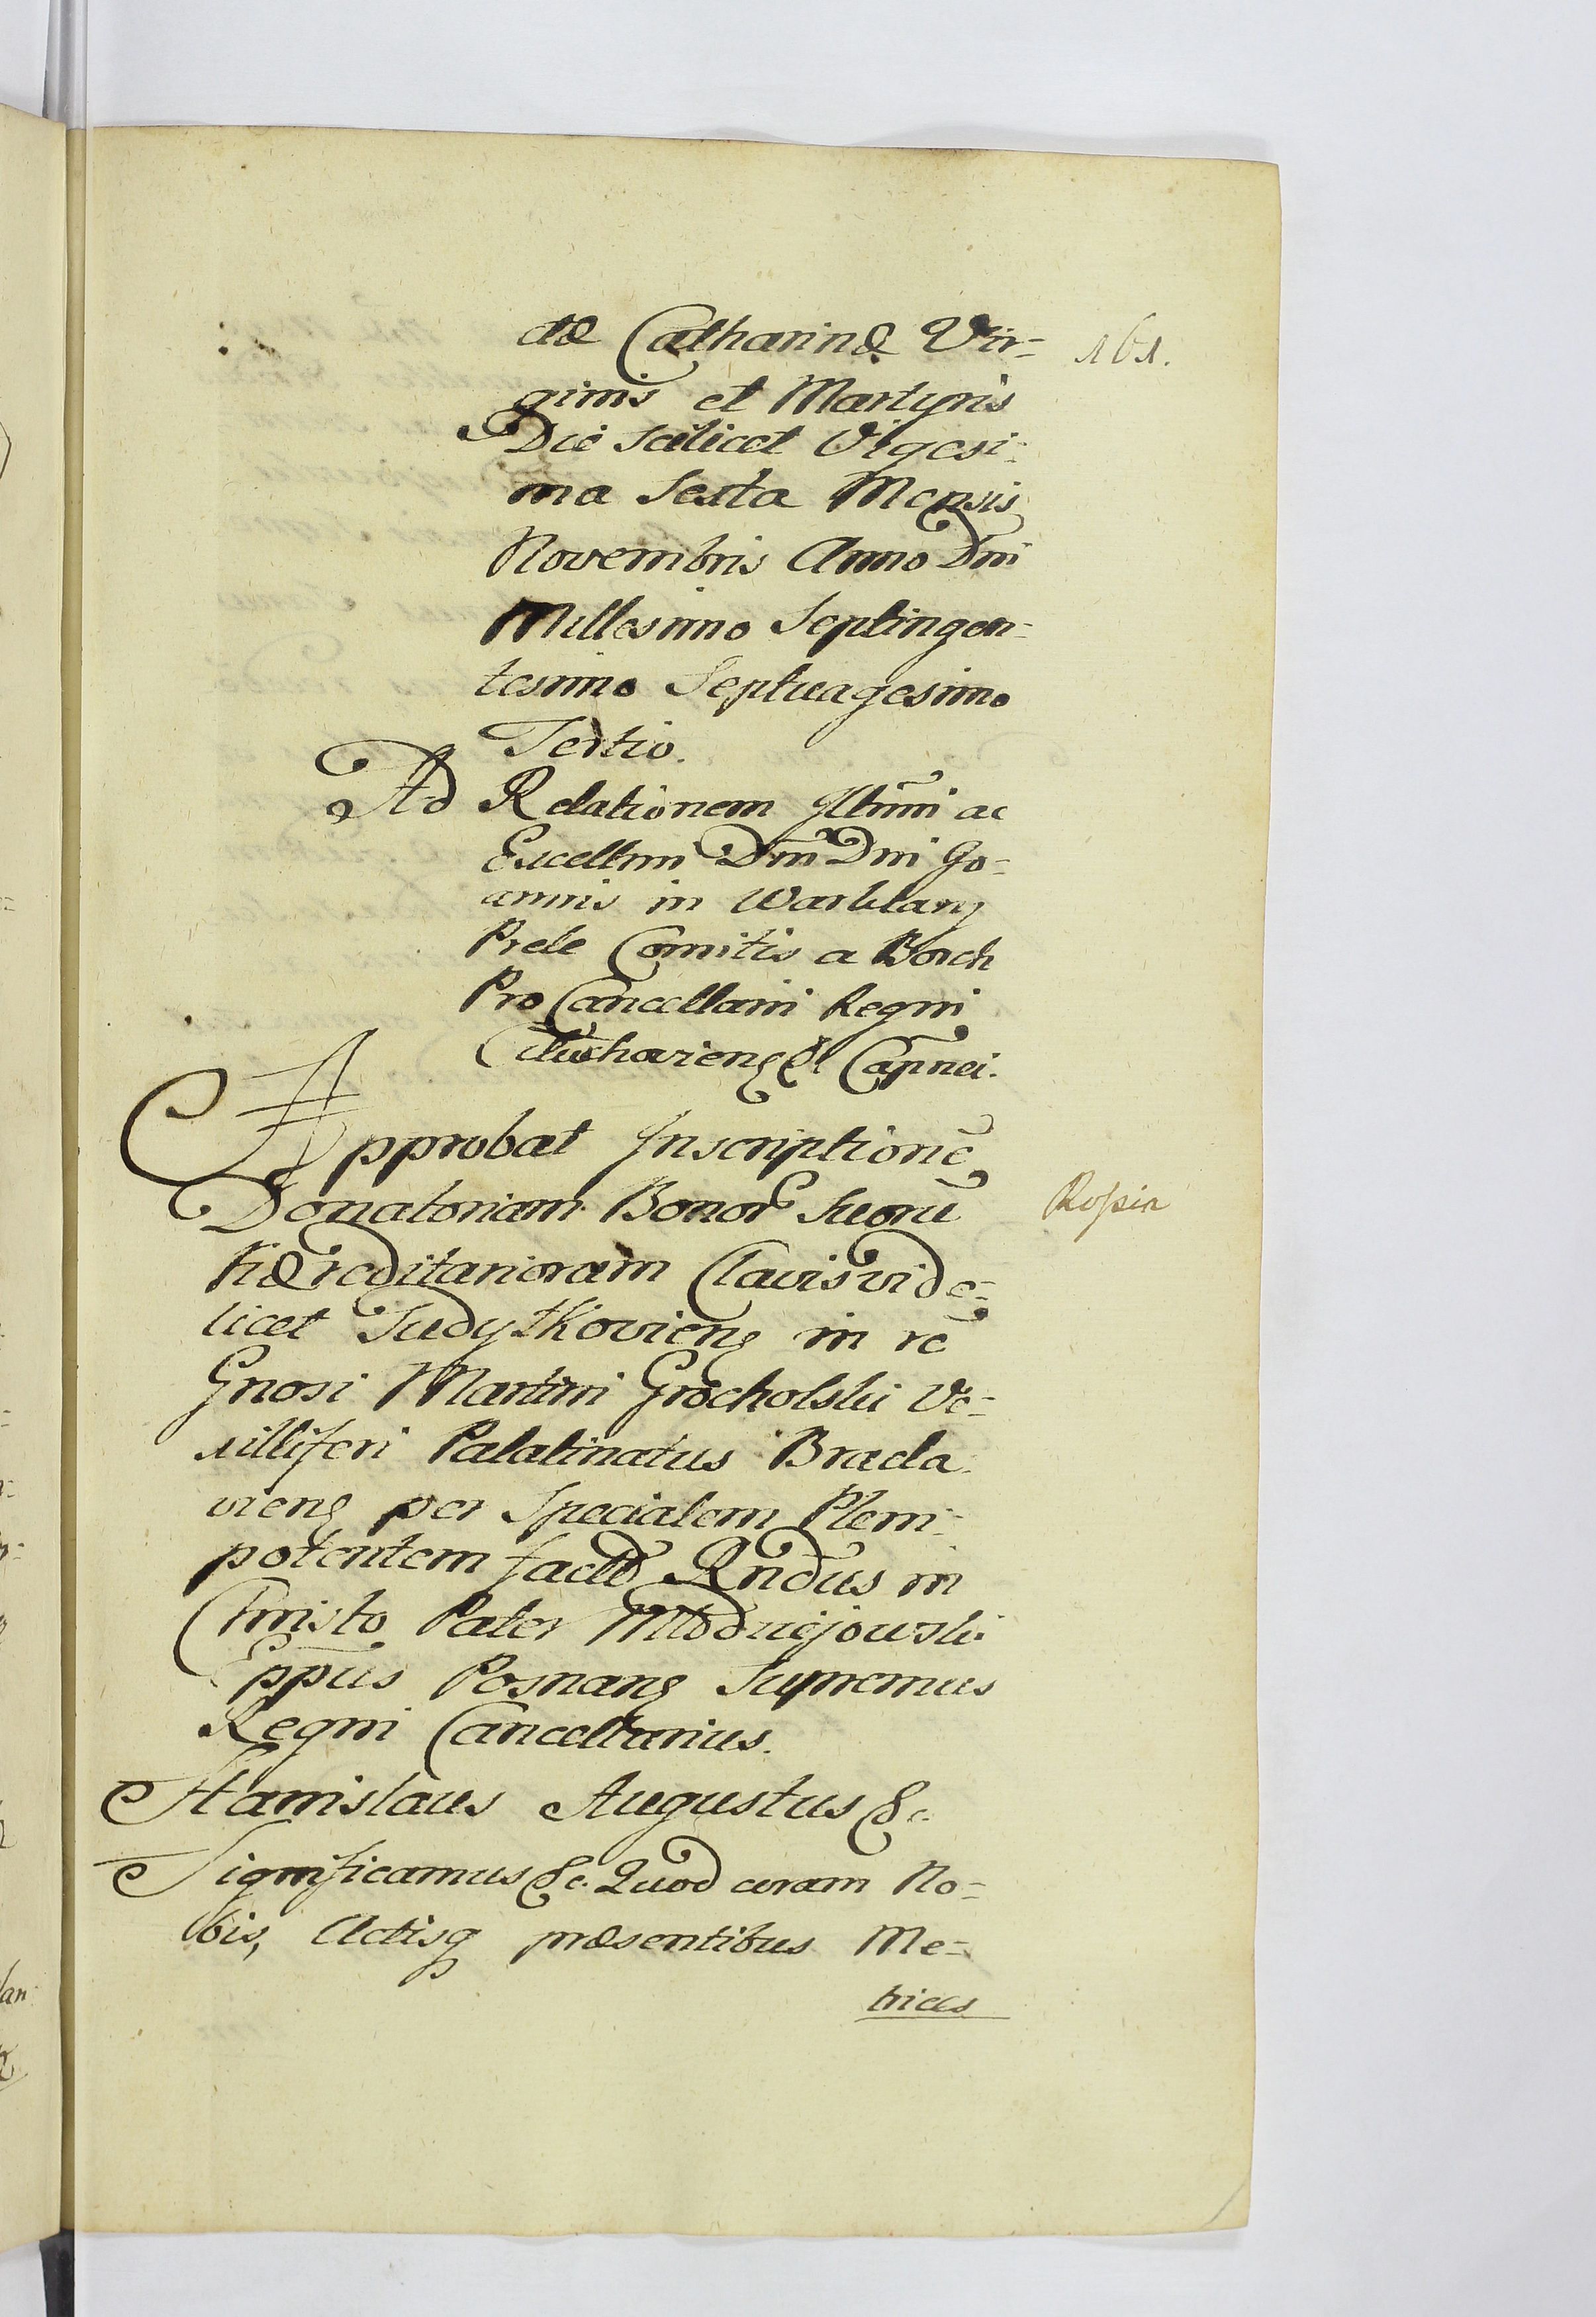 ctæ Catharinæ Vir=
161.
ginis et Martyris
Die Scilicet Vigesi=
ma Sexta Mensis
Novembris Anno Dni
Millesimo Septingen=
tesimo Septuagesimo
Tertio.
Ad Relationem Illmi ac
Excellmi Dni Dni Jo=
annis in Warklany
Prele Comitis a Borch
Pro Cancellarii Regni
&c Capnei.
Approbat Inscriptionē
Donatoriam Bonor Suorū
Rossia
Hæreditariorum Clavis vide=
licet Sudytkovieng in rē
Gnosi Martini Grocholski Ve=
xilliferi Palatinatus Bracla=
vieng per Specialem Pleni=
potentem factā Rndus in
Christo Pater Młodziejowski
Eppus Posnang Supremus
Regni Cancellarius.
Stanislaus Augustus &c.
Significamus &c. Quod coram No=
bis, Actisq præsentibus Me=
trices